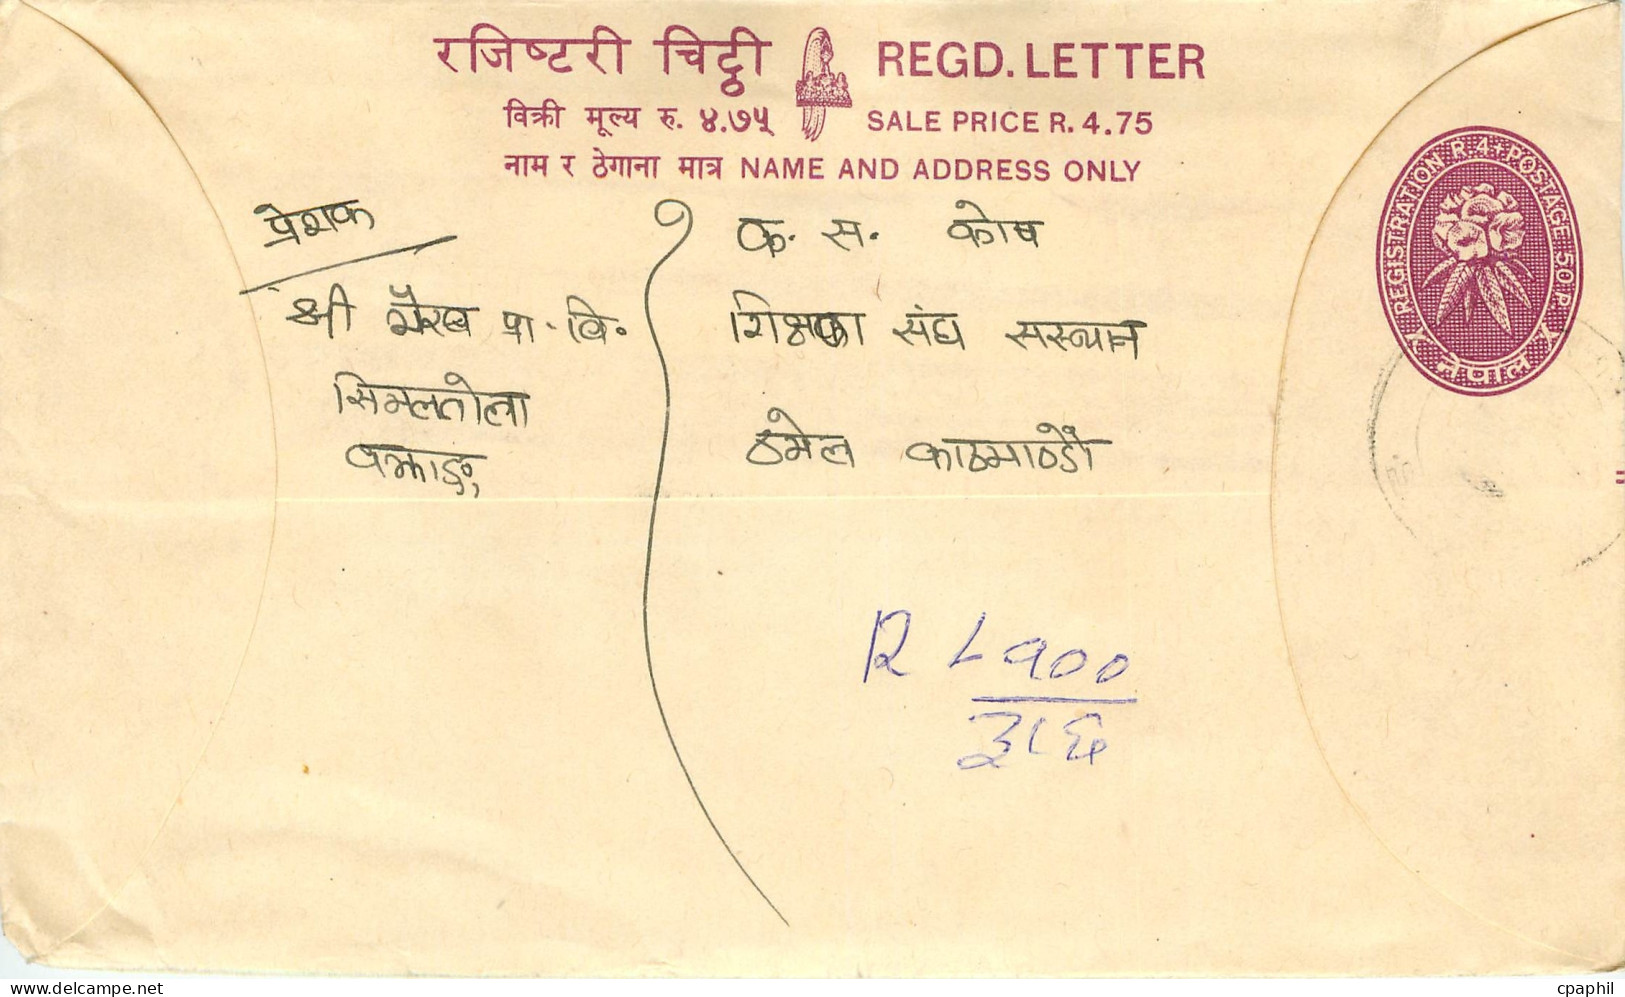 रजिष्टरी चिट्ठी REGD. LETTER
विक्री मूल्य रु. ४.७५ SALE PRICE R. 4.75
नाम र ठेगाना मात्र NAME AND ADDRESS ONLY
REGISTRATION R 4 + POSTAGE 50 P.
नेपाल
प्रेशक
श्री भैरब प्रा. वि.
सिमलतोला
वझाङ्ग,
क. स. कोष
संघ सस्थान
ठमेल काठमाण्डौ
R L १००
३१८६
cpaphil